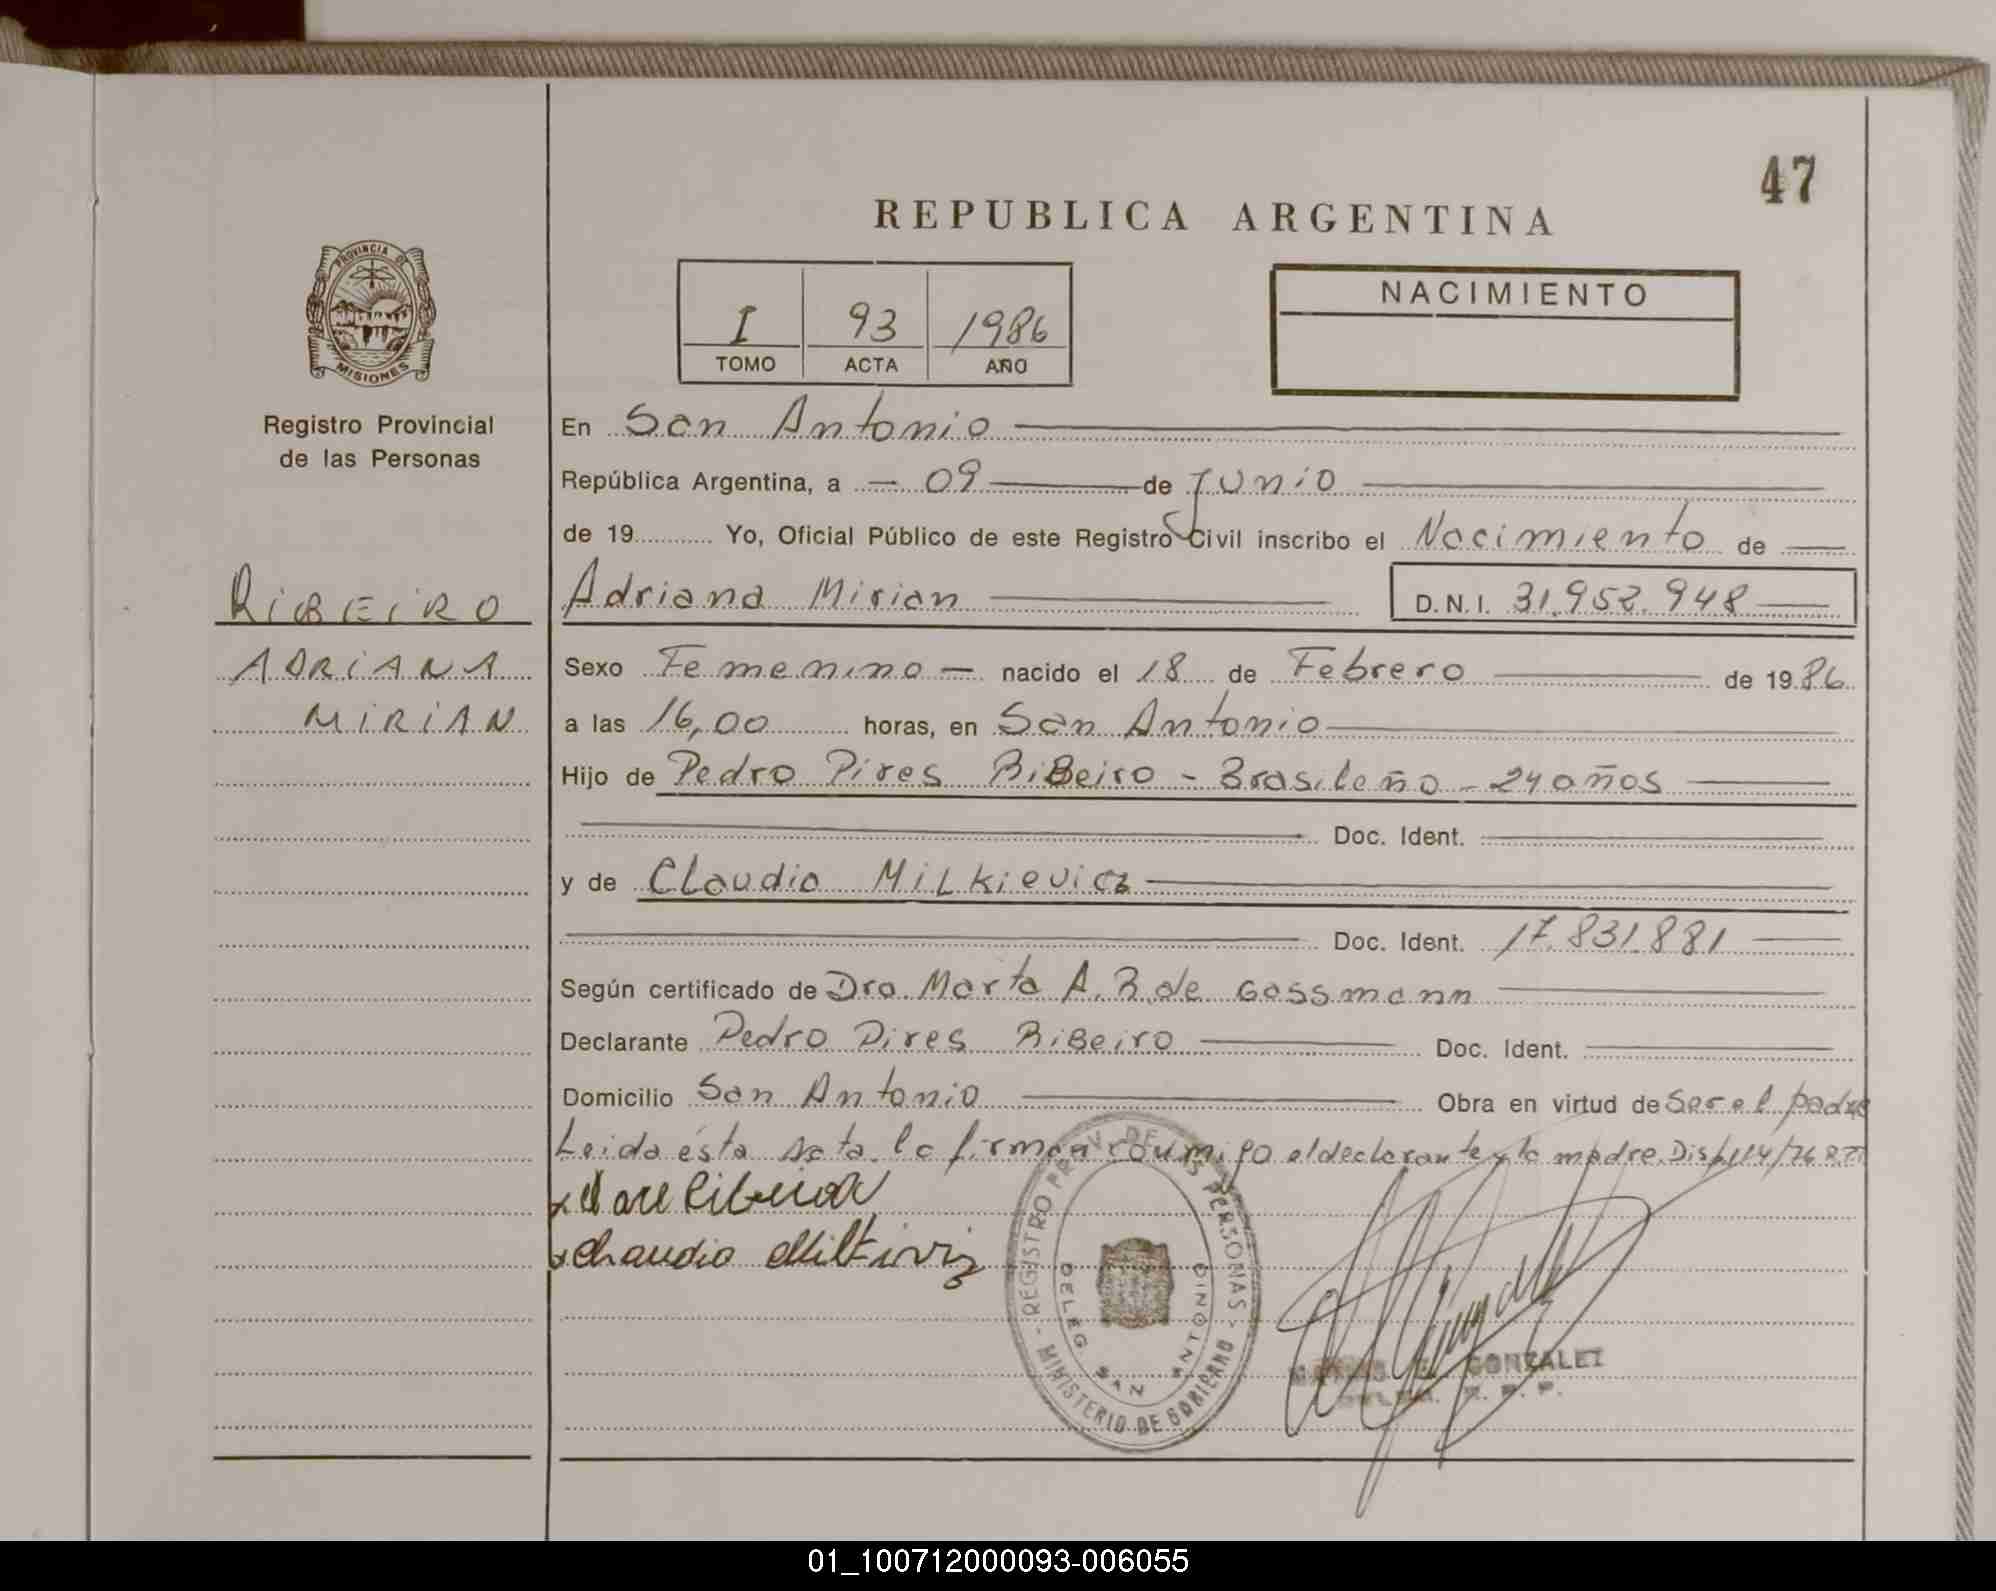 47
REPUBLICA ARGENTINA
PROVINCIA DE
MISIONES
I 93 1986
TOMO ACTA AÑO
NACIMIENTO
Registro Provincial
de las Personas
RIBEIRO
ADRIANA
MIRIAN
En San Antonio
República Argentina, a 09 de Junio
de 19 Yo, Oficial Público de este Registro Civil inscribo el Nacimiento de
Adriana Mirian D.N.I. 31.952.948
Sexo Femenino nacido el 18 de Febrero de 1986
a las 16,00 horas, en San Antonio
Hijo de Pedro Pires Ribeiro - Brasileño - 24 años
Doc. Ident.
y de Claudia Milkievicz
Doc. Ident. 17.831.881
Según certificado de Dra. Marta A. R. de Gassmann
Declarante Pedro Pires Ribeiro Doc. Ident.
Domicilio San Antonio Obra en virtud de ser el padre
Leida ésta Acta la firman conmigo el declarante y la madre. Disp. 114/76
Claudia
REGISTRO PROV. DE LAS PERSONAS
MINISTERIO DE GOBIERNO
DELEG. SAN ANTONIO
E. GONZALEZ
01_100712000093-006055